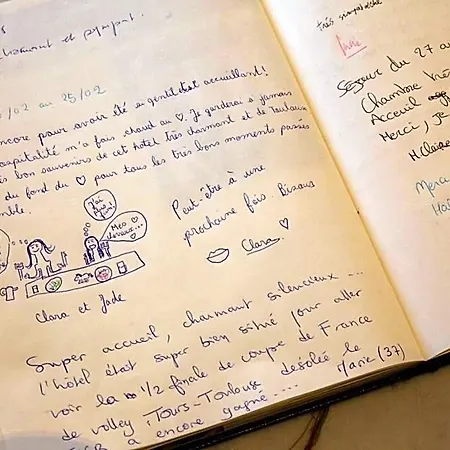 charmant et sympat.
/02 au 25/02
encore pour avoir été si gentil et accueillant!
hospitalité m'a fais chaud au ♡. Je garderai à jamais
très bon souvenirs de cet hotel très charmant et de Toulouse
du fond du ♡ pour tous les très bons moments passés
Peut-être à une
prochaine fois. Bisous
Clara. ♡
Clara et Jade
Super accueil, charmant silencieux...
l'hôtel était super bien situé pour aller
voir la 1/2 finale de coupe de France
de volley : Tours-Toulouse désolée le
a encore gagné.... Marie (37)
très sympathique
Marie
Séjour du 27 a
Chambre
Acceuil
Merci, je
M. Claire
Merci